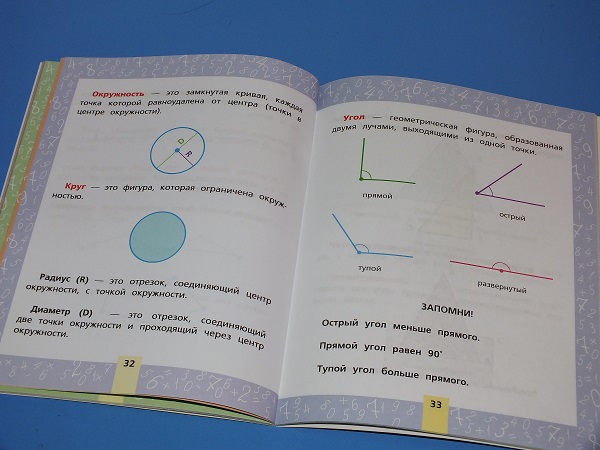 Окружность — это замкнутая кривая, каждая
точка которой равноудалена от центра (точки в
центре окружности).
D
R
Круг — это фигура, которая ограничена окруж-
ностью.
Радиус (R) — это отрезок, соединяющий центр
окружности, с точкой окружности.
Диаметр (D) — это отрезок, соединяющий
две точки окружности и проходящий через центр
окружности.
32
Угол — геометрическая фигура, образованная
двумя лучами, выходящими из одной точки.
прямой
острый
тупой
развернутый
ЗАПОМНИ!
Острый угол меньше прямого.
Прямой угол равен 90°
Тупой угол больше прямого.
33